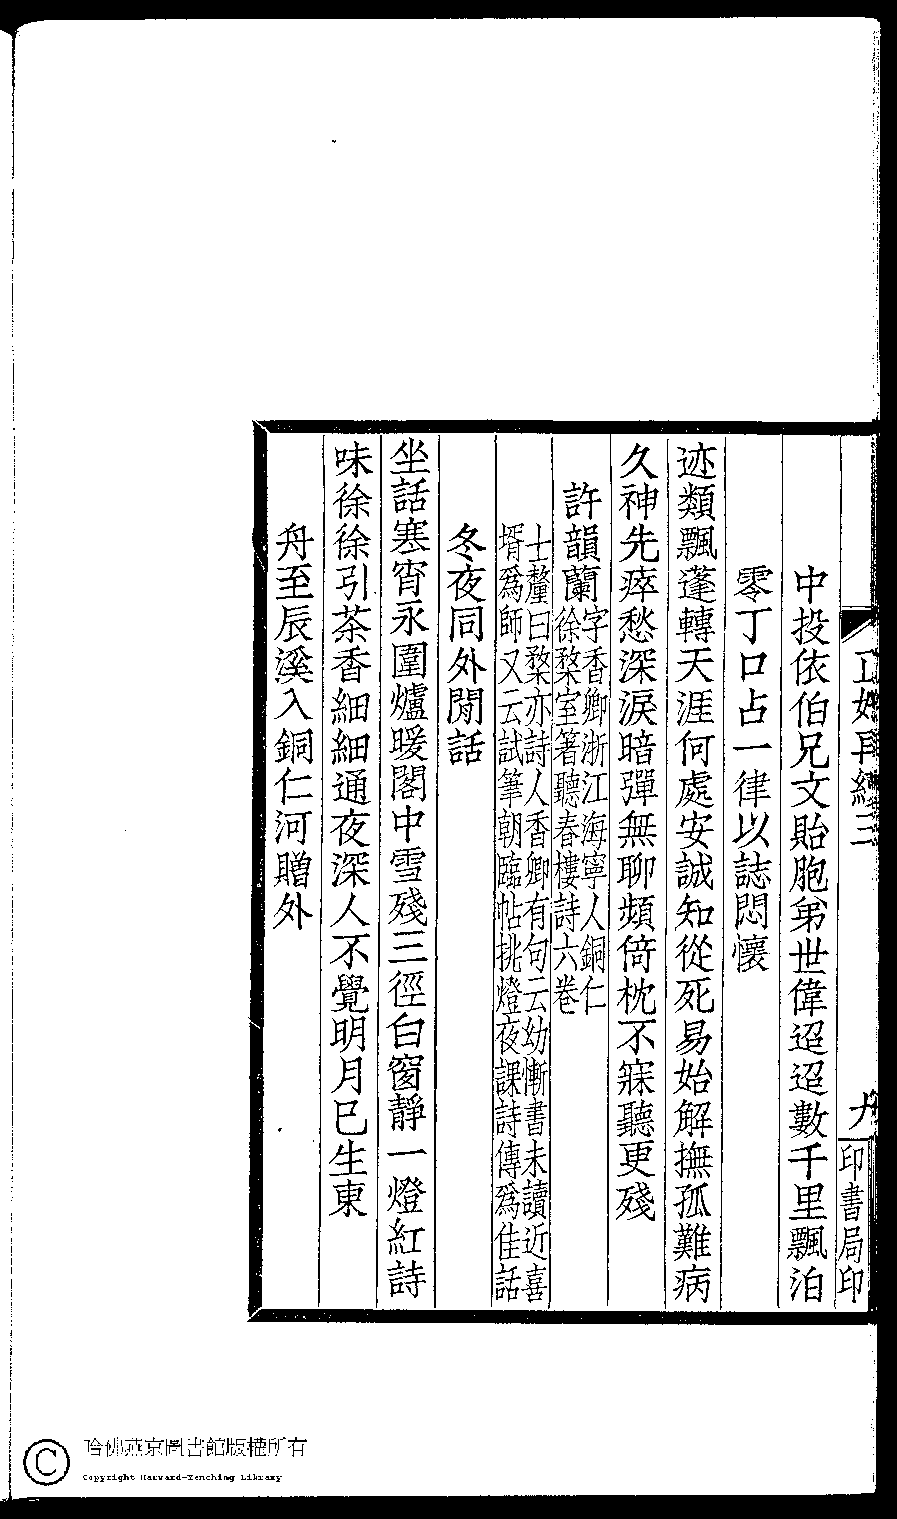 中投依伯兄文貽胞弟世偉迢迢數千里飄泊
零丁口占一律以誌悶懷
迹類飄蓬轉天涯何處安誠知從死易始解撫孤難病
久神先瘁愁深淚暗彈無聊頻倚枕不寐聽更殘
許韻蘭字香卿浙江海寧人銅仁
徐楘室著聽春樓詩六卷
士釐曰楘亦詩人香卿有句云幼慚書未讀近喜
壻爲師又云試筆朝臨帖挑燈夜課詩傳爲佳話
冬夜同外閒話
坐話寒宵永圍爐暖閣中雪殘三徑白窗靜一燈紅詩
味徐徐引茶香細細通夜深人不覺明月已生東
舟至辰溪入銅仁河贈外
印書局印
哈佛燕京圖書館版權所有
Copyright Harvard-Yenching Library